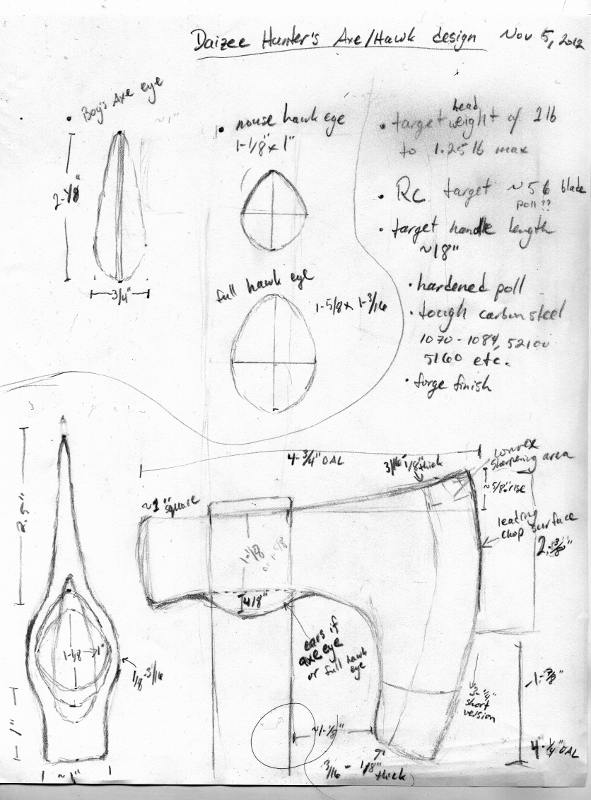 Daizee Hunter's Axe/Hawk design Nov 5, 2012
• Boy's Axe eye
2-1/8"
3/4"
• mouse hawk eye
1-1/8" x 1"
full hawk eye
1-5/8 x 1-3/16
• target head weight of 1lb
to 1.25 lb max
• Rc target ~56 blade
poll??
• target handle length
~18"
• hardened poll
• tough carbon steel
1070-1084, 52100
5160 etc.
• forge finish
4-3/4" OAL
3/16 1/8" thick
convex
sharpening area
~5/8" rise
leading
chop surface
~1" square
1-1/8
4/8"
ears if
axe eye
or full hawk
eye
1-1/8
1"
1/8-3/16
~1"
~1-1/8"
3/16 - 1/8"
thick
short
version
1-3/8"
4-1/4" OAL